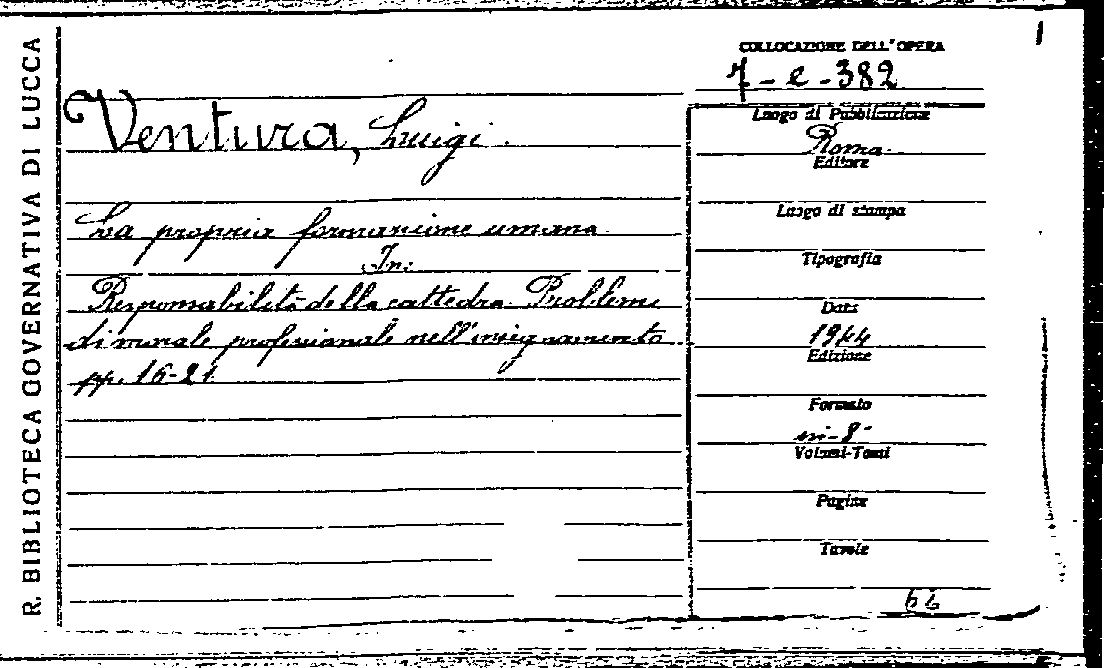 R. BIBLIOTECA GOVERNATIVA DI LUCCA
COLLOCAZIONE DELL'OPERA
7-e-382
Ventura, Luigi.
La propria formazione umana.
In:
Responsabilità della cattedra. Problemi
di morale professionale nell'insegnamento.
pp. 16-21
Luogo di Pubblicazione
Roma
Editore
Luogo di stampa
Tipografia
Data
1944
Edizione
Formato
in-8°
Volumi-Tomi
Pagine
Tavole